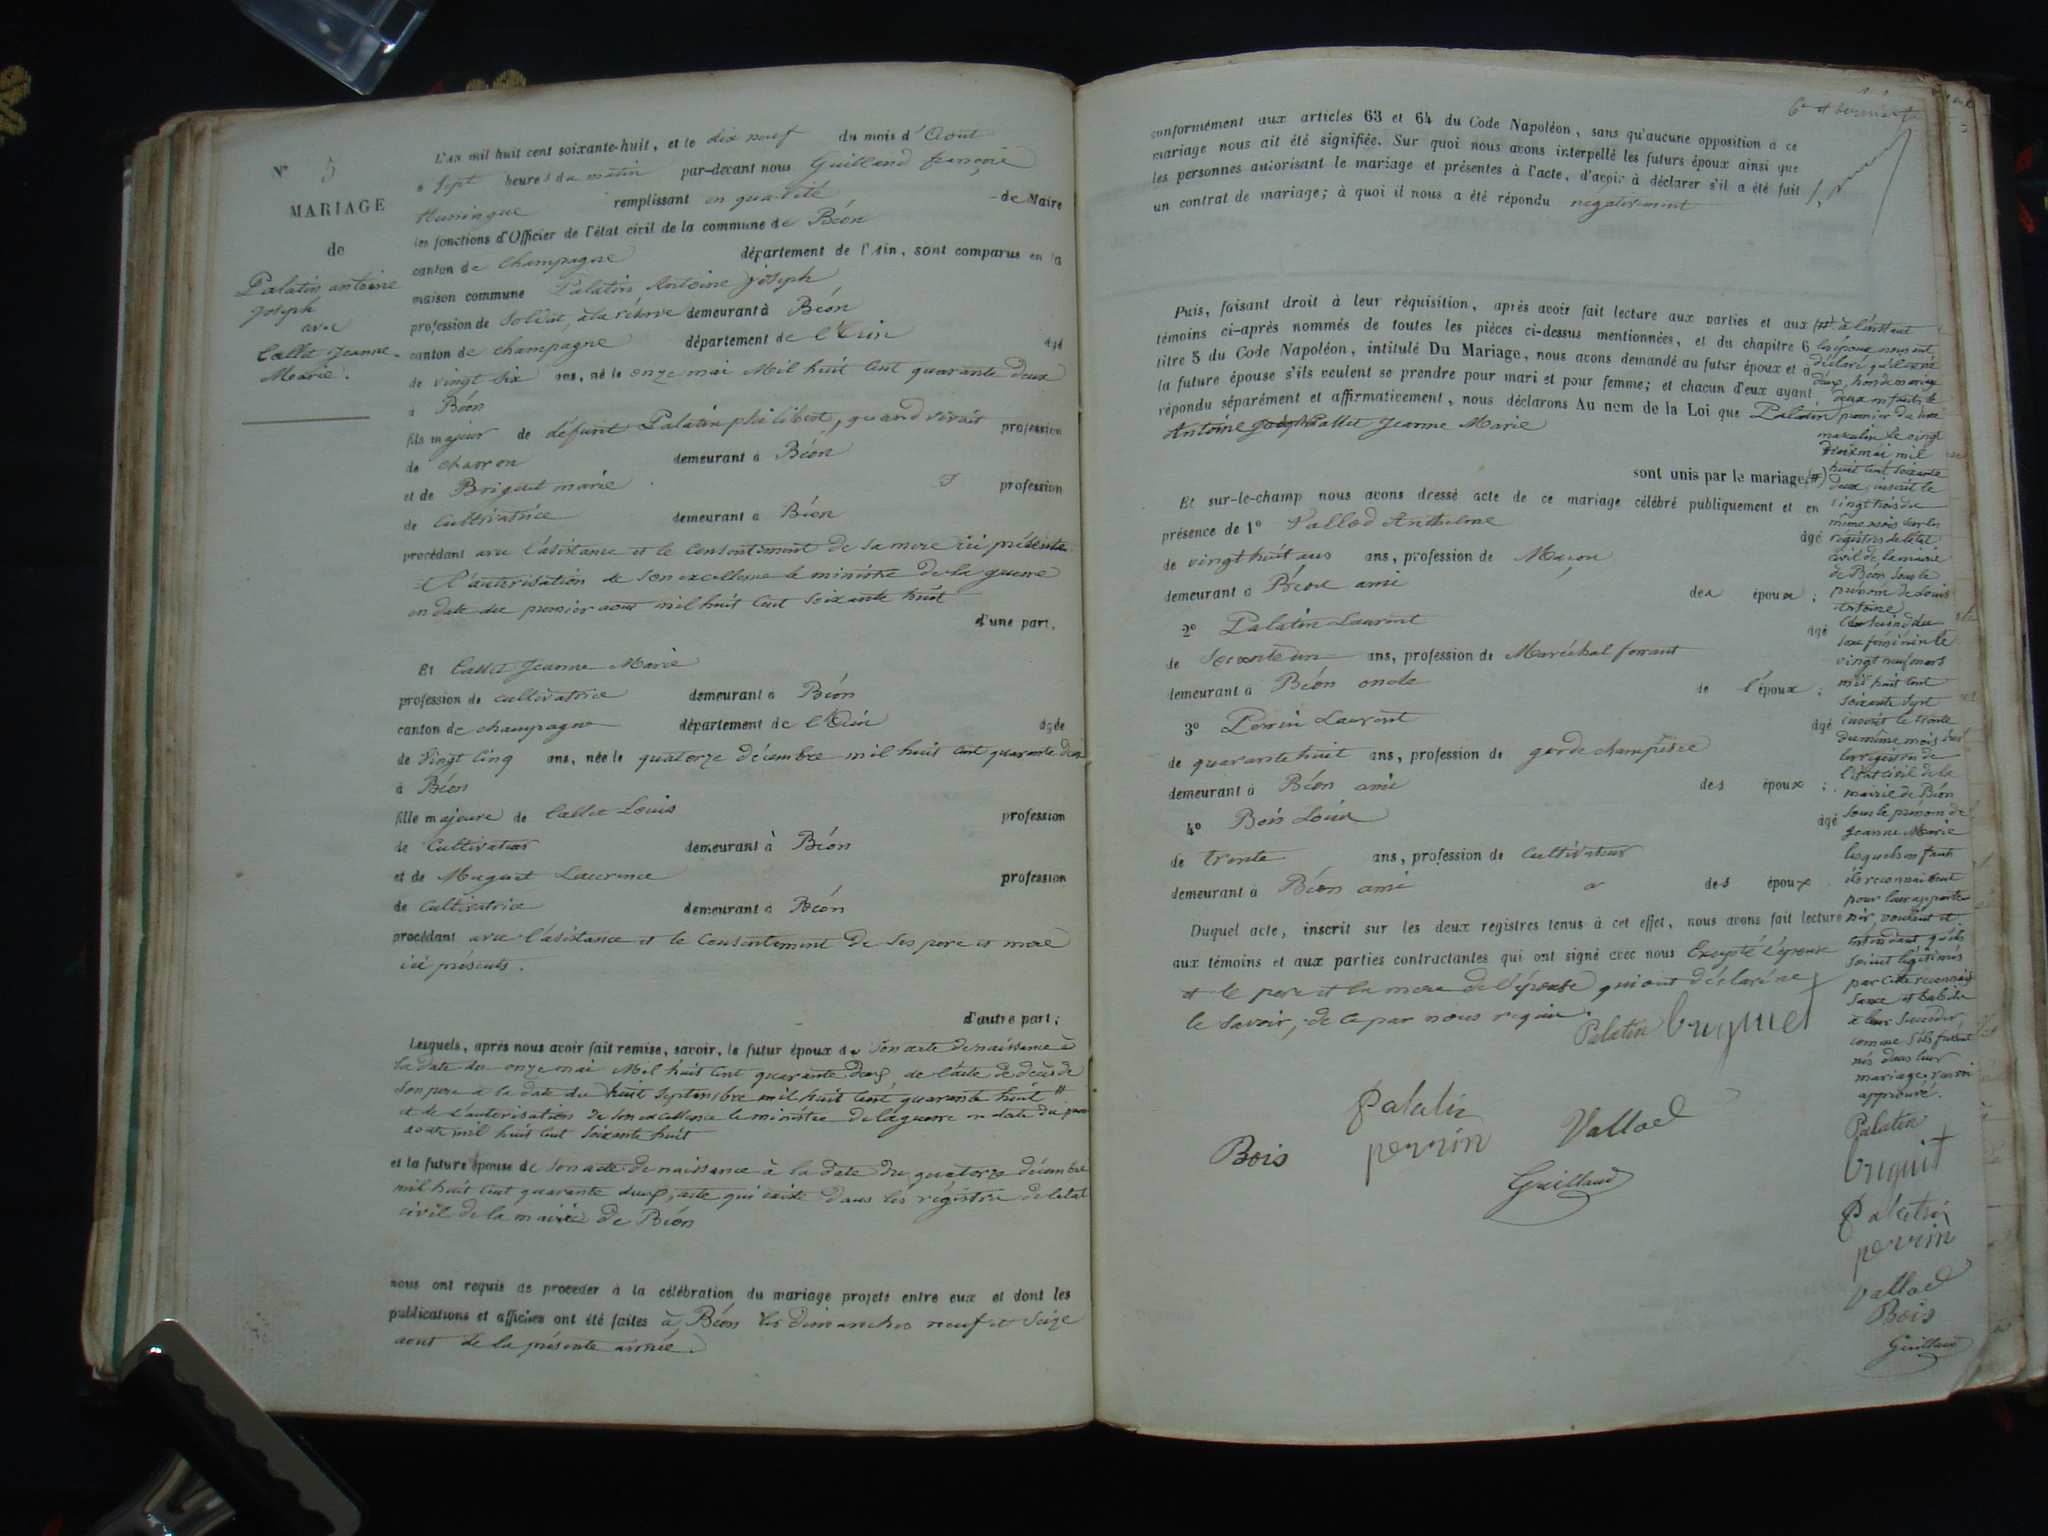 N° 5
MARIAGE
de
Palatin antoine
joseph
avec
Callet Jeanne
Marie.
L'an mil huit cent soixante-huit, et le dix neuf du mois d'Aout
à Sept heures du matin par-devant nous Guilland françois
remplissant en qualité de Maire
les fonctions d'Officier de l'état civil de la commune de Béon
canton de Champagne département de l'Ain, sont comparus en la
maison commune Palatin Antoine joseph
profession de Soldat, à la réserve demeurant à Béon
canton de champagne département de l'Ain âgé
de vingt six ans, né le onze mai Mil huit Cent quarante deux
à Béon
fils majeur de défunt Palatin philibert, quand vivait profession
de charron demeurant à Béon
et de Briguet marie profession
de Cultivatrice demeurant à Béon
procédant avec l'asistance et le Consentement de sa mere ici présente
l'autorisation de Son excellence le ministre de la guerre
en date du premier aout mil huit Cent Soixante huit
d'une part,
Et Callet Jeanne Marie
profession de cultivatrice demeurant à Béon
canton de champagne département de l'Ain âgée
de Vingt Cinq ans, née le quatorze décembre mil huit cent quarante deux
à Béon
fille majeure de Callet Louis profession
de Cultivateur demeurant à Béon
et de Muguet Laurence profession
de Cultivatrice demeurant à Béon
procédant avec l'asistance et le Consentement de Ses pere et mere
ici présents.
d'autre part;
Lesquels, après nous avoir fait remise, savoir, le futur époux de Son acte de naissance à
la date du onze mai Mil huit Cent quarante deux, de l'acte de décès de
Son pere à la date du huit Septembre mil huit Cent quarante huit
et de l'autorisation de Son excellence le ministre de la guerre en date du
aout mil huit Cent Soixante huit
et la future épouse de Son acte de naissance à la date du quatorze décembre
mil huit Cent quarante deux, acte qui existe dans les régistre de l'état
civil de la mairie de Béon
nous ont requis de procéder à la célébration du mariage projeté entre eux et dont les
publications et affiches ont été faites à Béon les dimanches neuf et Seize
aout de la présente année.
conformément aux articles 63 et 64 du Code Napoléon, sans qu'aucune opposition à ce
mariage nous ait été signifiée. Sur quoi nous avons interpellé les futurs époux ainsi que
les personnes autorisant le mariage et présentes à l'acte, d'avoir à déclarer s'il a été fait
un contrat de mariage; à quoi il nous a été répondu négativement
Puis, faisant droit à leur réquisition, après avoir fait lecture aux parties et aux
témoins ci-après nommés de toutes les pièces ci-dessus mentionnées, et du chapitre 6
titre 5 du Code Napoléon, intitulé Du Mariage, nous avons demandé au futur époux et à
la future épouse s'ils veulent se prendre pour mari et pour femme; et chacun d'eux ayant
répondu séparément et affirmativement, nous déclarons Au nom de la Loi que Palatin
Antoine Joseph Callet Jeanne Marie
sont unis par le mariage.
Et sur-le-champ nous avons dressé acte de ce mariage célébré publiquement et en
présence de 1° Vallod Anthelme âgé
de vingt huit ans ans, profession de Maçon
demeurant à Béon ami des époux;
2° Palatin Laurent âgé
de Soixante un ans, profession de Maréchal ferrant
demeurant à Béon oncle de l'époux;
3° Perrin Laurent âgé
de quarante huit ans, profession de garde champêtre
demeurant à Béon ami des époux;
4° Bois Louis âgé
de trente ans, profession de Cultivateur
demeurant à Béon ami des époux.
Duquel acte, inscrit sur les deux registres tenus à cet effet, nous avons fait lecture
aux témoins et aux parties contractantes qui ont signé avec nous Excepté l'épouse
et le pere et la mere de l'épouse qui ont déclaré ne
le Savoir, de ce par nous requis.
Palatin briguet
Palatin
Bois perrin Vallod
Guilland
à l'instant
les époux nous ont
déclaré qu'il est né
d'eux, hors de mariage
deux enfants le
premier du sexe
masculin le vingt
mai mil
huit Cent Soixante
deux, inscrit le
vingt trois du
même mois sur les
régistres de l'état
civil de la mairie
de Béon Sous le
prénom de Louis
Antoine,
le Second du
Sexe féminin le
vingt neuf mars
mil huit Cent
Soixante Sept
inscrit le trente
du même mois Sur
les régistres de
l'état civil de la
mairie de Béon
Sous le prénom de
Jeanne Marie
lesquels enfants
ils reconnaissent
pour leur apparte-
nir, voulant et
entendant qu'ils
Soient légitimés
par cette reconnais
sance et habiles
à leur Succéder
comme S'ils fussent
nés dans leur
mariage. renvoi
approuvé.
Palatin
briguet
Palatin
perrin
Vallod
Bois
Guilland